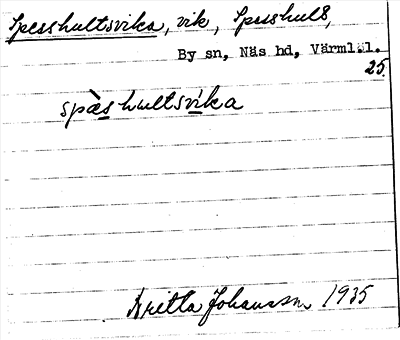 Spesshultsvika, vik, Spesshult,
By sn, Näs hd, Värml.l.
25.
spæ̀s hultsvika
Britta Johansson 1935